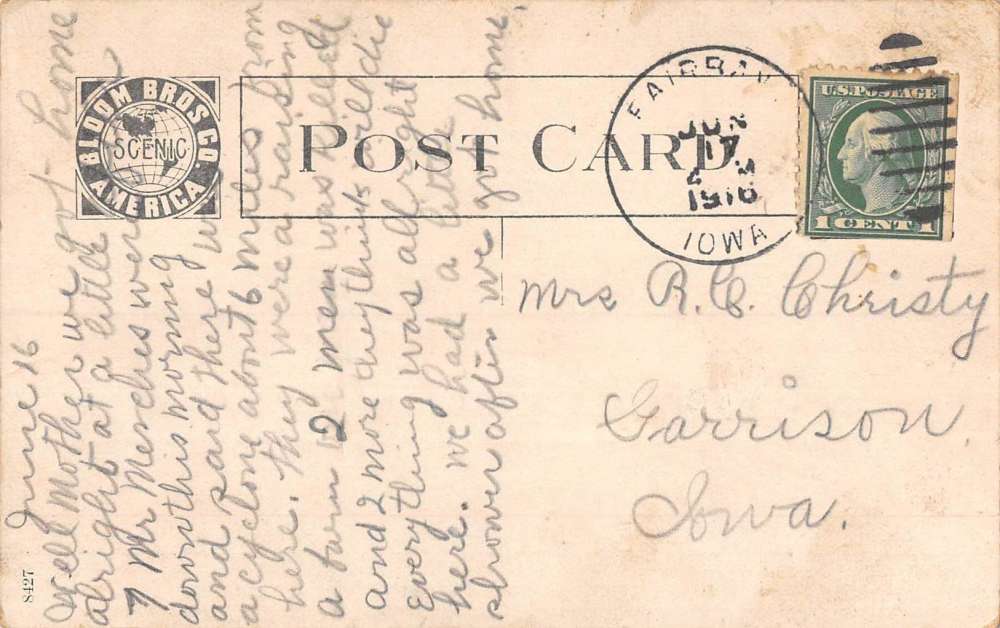 BLOOM BROS CO
SCENIC
AMERICA
POST CARD.
FAIRBANK
JUN
17
M
1916
IOWA
U.S. POSTAGE
1 CENT 1
Mrs R.C. Christy
Garrison,
Iowa.
June 16
Well Mother we got home
alright at a little after
7 Mr Mensches were
down this morning
and said there was
a cyclone about 6 miles from
here. they were a raising
a barn 2 men was killed
and 2 more they think will die
Everything was all right
here. we had a little
shower after we got home.
8427